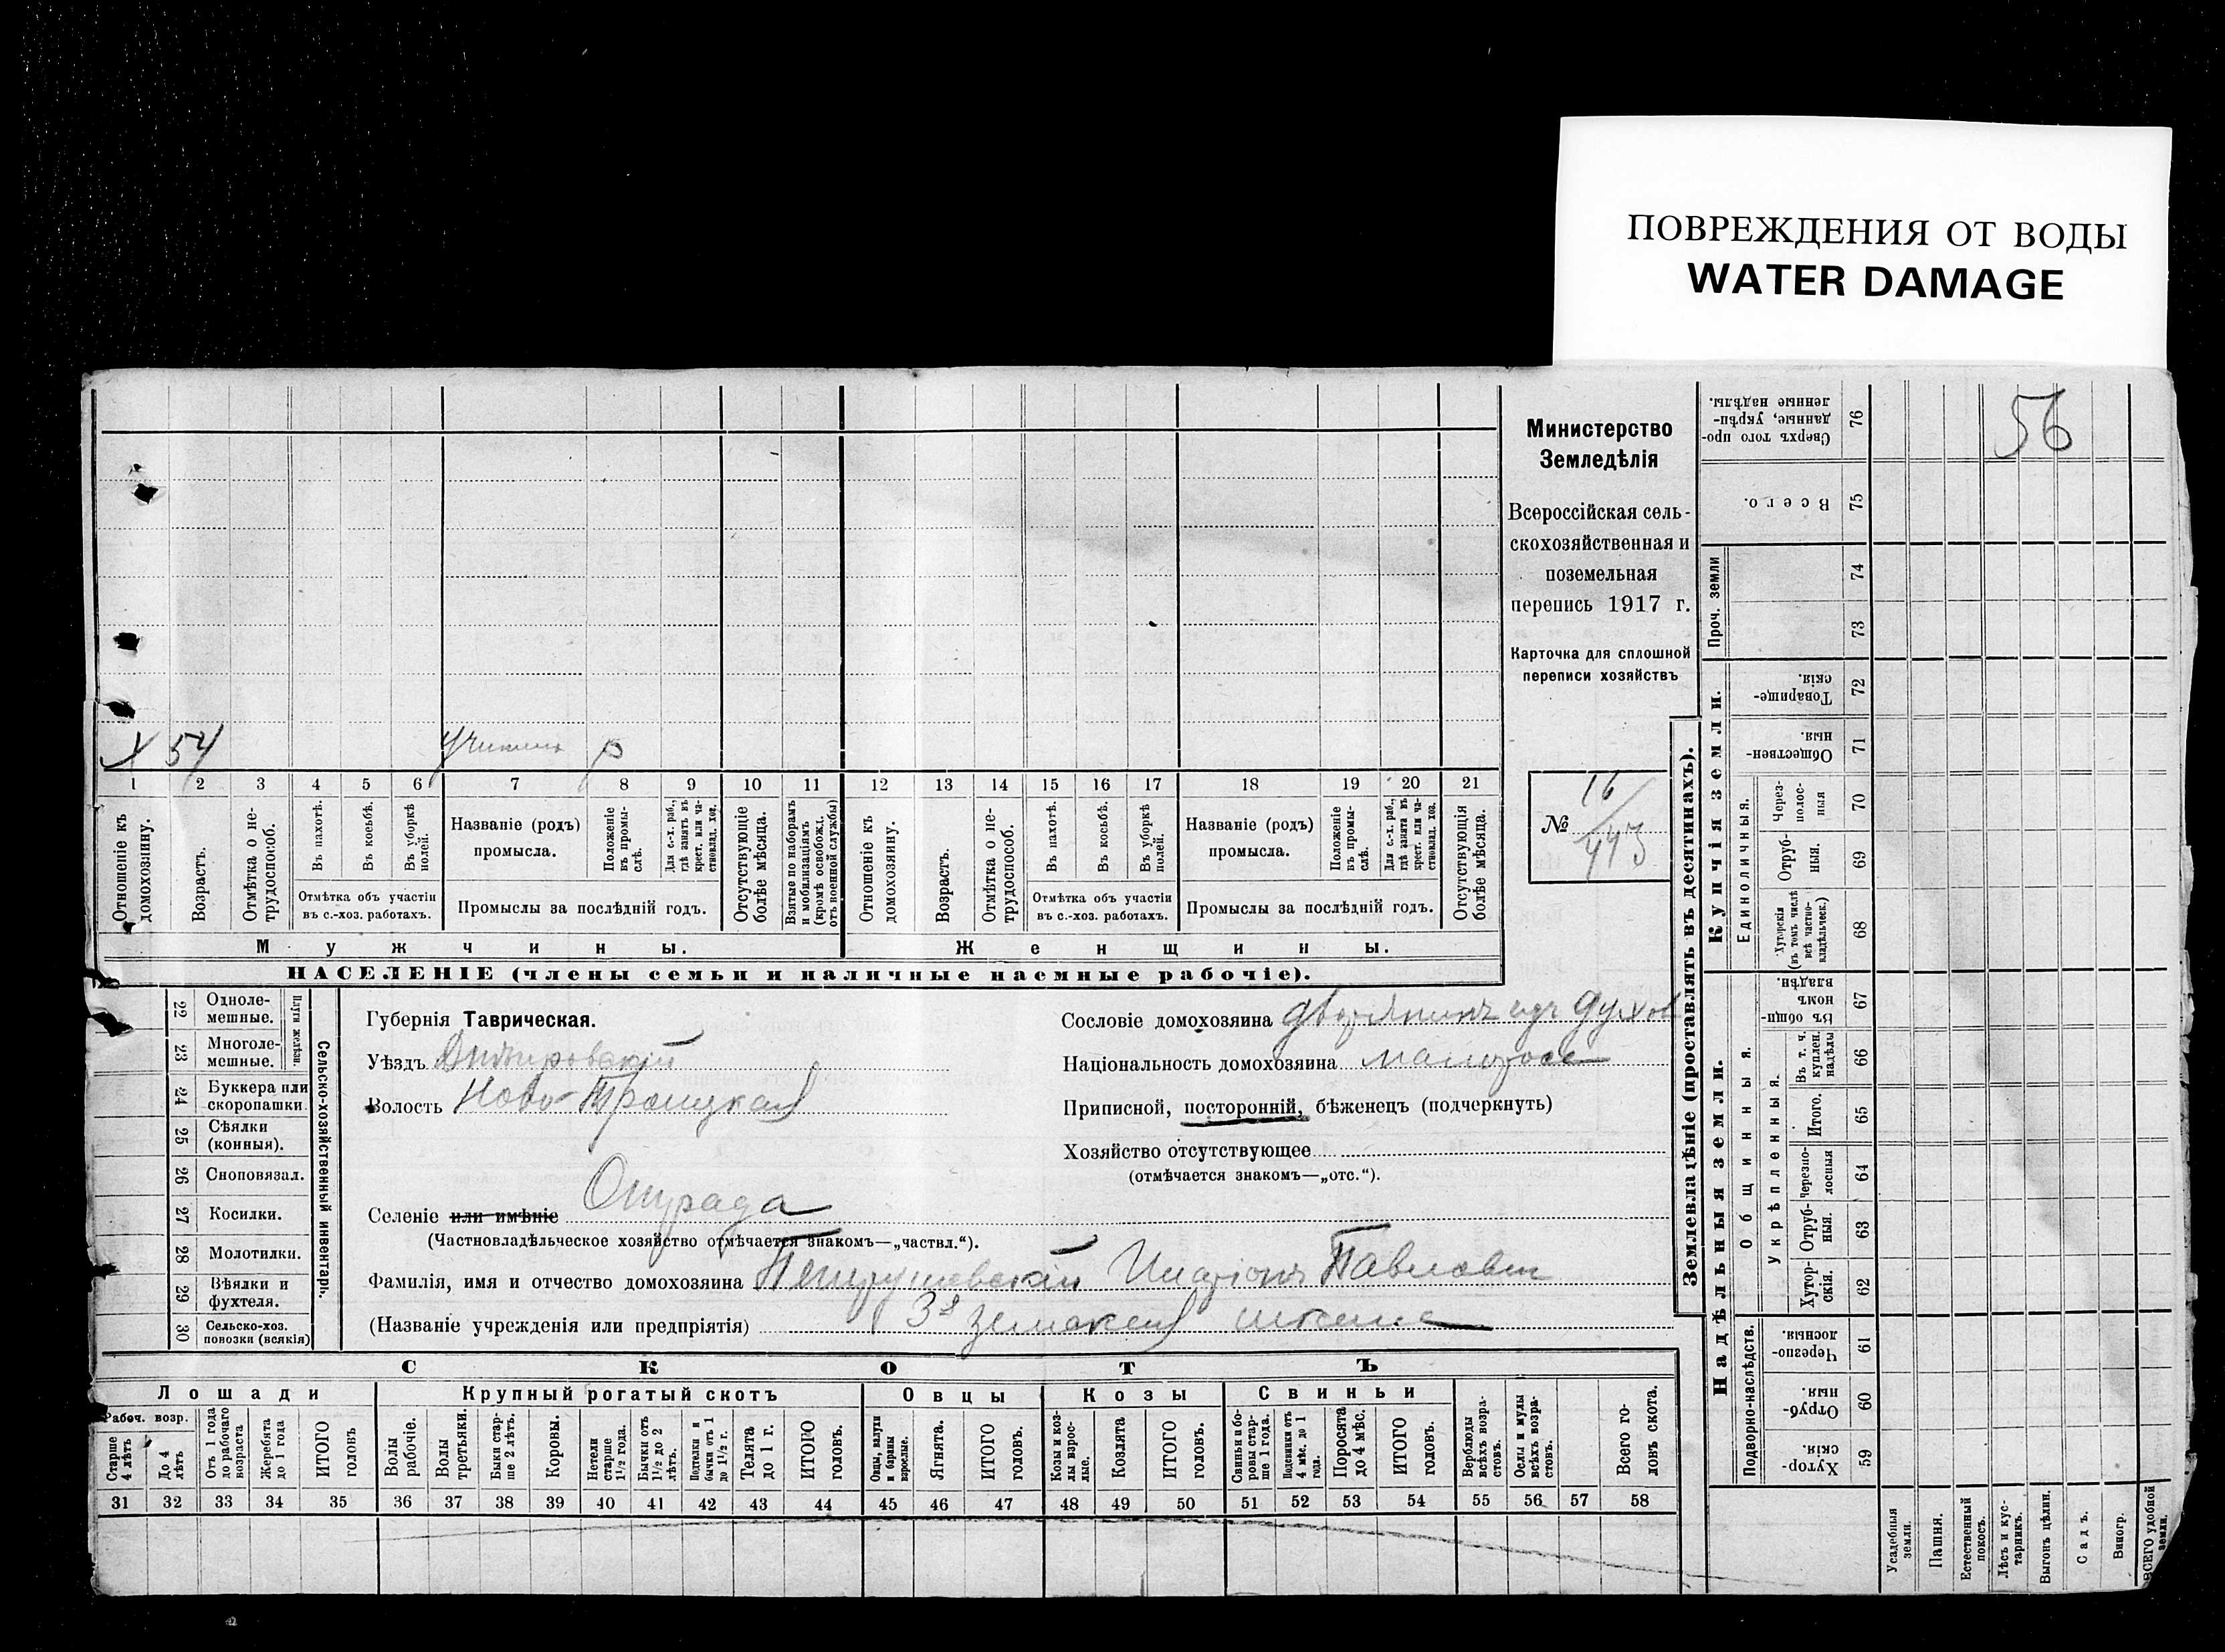 ПОВРЕЖДЕНИЯ ОТ ВОДЫ
WATER DAMAGE
56
Министерство
Земледѣлія
Всероссійская сель-
скохозяйственная и
поземельная
перепись 1917 г.
Карточка для сплошной
переписи хозяйствъ
№ 16/443
X 54 р
1 2 3 4 5 6 7 8 9 10 11 12 13 14 15 16 17 18 19 20 21
Отношеніе къ домохозяину.
Возрастъ.
Отмѣтка о не-трудоспособ.
Въ пахотѣ.
Въ косьбѣ.
Въ уборкѣ полей.
Отмѣтка объ участіи
въ с.-хоз. работахъ.
Названіе (родъ)
промысла.
Положеніе въ промы-слѣ.
Для с.-х. раб., гдѣ занятъ въ крест. или ча-стновлад. хоз.
Промыслы за послѣдній годъ.
Отсутствующіе болѣе мѣсяца.
Взятые по наборамъ и мобилизаціямъ (кромѣ освобожд. отъ военной службы)
Отношеніе къ домохозяину.
Возрастъ.
Отмѣтка о не-трудоспособ.
Въ пахотѣ.
Въ косьбѣ.
Въ уборкѣ полей.
Отмѣтка объ участіи
въ с.-хоз. работахъ.
Названіе (родъ)
промысла.
Положеніе въ промы-слѣ.
Для с.-х. раб., гдѣ занята въ крест. или ча-стновлад. хоз.
Промыслы за послѣдній годъ.
Отсутствующія болѣе мѣсяца.
Мужчины.
Женщины.
НАСЕЛЕНІЕ (члены семьи и наличные наемные рабочіе).
Сельско-хозяйственный инвентарь.
Плуги желѣзн.
22 Одноле-мешные.
23 Многоле-мешные.
24 Буккера или скоропашки
25 Сѣялки (конныя).
26 Сноповязал.
27 Косилки.
28 Молотилки.
29 Вѣялки и фухтеля.
30 Сельско-хоз. повозки (всякія)
Губернія Таврическая.
Уѣздъ Днѣпровскій
Волость Ново-Троицкая
Селеніе или имѣніе Отрада
(Частновладѣльческое хозяйство отмѣчается знакомъ—„частвл.“).
Фамилія, имя и отчество домохозяина Петрушевскій Иларіонъ Павлович
(Названіе учрежденія или предпріятія) 3я земская школа
Сословіе домохозяина дворянинъ изъ духов
Національность домохозяина малоросс
Приписной, посторонній, бѣженецъ (подчеркнуть)
Хозяйство отсутствующее
(отмѣчается знакомъ—„отс.“).
СКОТЪ
Лошади
Крупный рогатый скотъ
Овцы
Козы
Свиньи
Рабоч. возр.
Старше 4 лѣтъ
До 4 лѣтъ
Отъ 1 года до рабочаго возраста
Жеребята до 1 года
ИТОГО головъ
Волы рабочіе.
Волы третьяки.
Быки стар-ше 2 лѣтъ.
Коровы.
Нетели старше 1½ года.
Бычки отъ 1½ до 2 лѣтъ.
Подтелки и бычки отъ 1 до 1½ г.
Телята до 1 г.
ИТОГО головъ.
Овцы, валухи и бараны взрослые.
Ягнята.
ИТОГО головъ.
Козы и коз-лы взрос-лые.
Козлята
ИТОГО головъ.
Свиньи и бо-ровы стар-ше 1 года.
Подсвинки отъ 4 мѣс. до 1 года.
Поросята до 4 мѣс.
ИТОГО головъ.
Верблюды всѣхъ возра-стовъ.
Ослы и мулы всѣхъ возра-стовъ.
Всего го-ловъ скота.
31 32 33 34 35 36 37 38 39 40 41 42 43 44 45 46 47 48 49 50 51 52 53 54 55 56 57 58
Землевладѣніе (проставлять въ десятинахъ).
Надѣльныя земли.
Купчія земли.
Проч. земли
Подворно-наслѣдств.
Общинныя.
Укрѣпленныя.
Единоличныя.
Сверхъ того про-данные, укрѣп-ленные надѣлы. 76
Всего. 75
74
73
Товарище-скія. 72
Обществен-ныя. 71
Через-полос-ныя 70
Отруб-ныя. 69
Хуторскія (въ томъ числѣ всѣ частно-владѣльческ.) 68
Въ общин-номъ владѣн. 67
Въ т. ч. куплен. надѣлы 66
Итого. 65
Черезпо-лосныя 64
Отруб-ныя. 63
Хутор-скія. 62
Черезпо-лосныя. 61
Отруб-ныя. 60
Хутор-скія. 59
Усадебныя земли.
Пашня.
Естественный покосъ.
Лѣсъ и кус-тарникъ.
Выгонъ цѣлин.
Садъ.
Виногр.
ВСЕГО удобной земли.